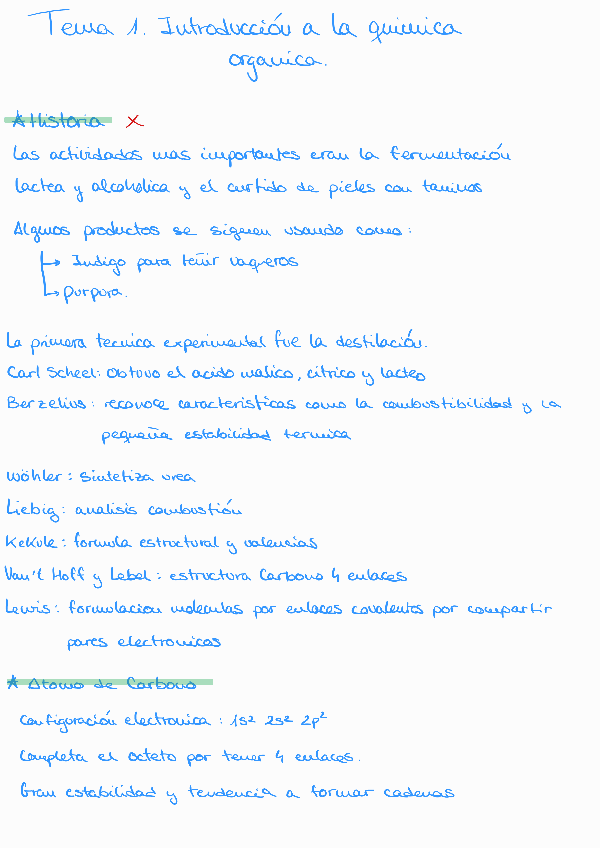 Tema 1. Introducción a la quimica
organica.
★ Historia ×
Las actividades mas importantes eran la fermentación
lactea y alcoholica y el curtido de pieles con taninos
Algunos productos se siguen usando como:
→ Indigo para teñir vaqueros
→ purpura.
La primera tecnica experimental fue la destilación.
Carl Scheel: Obtuvo el acido malico, citrico y lacteo
Berzelius: reconoce caracteristicas como la combustibilidad y la
pequeña estabilidad termica
Wöhler: Sintetiza urea
Liebig: analisis combustión
Kekule: formula estructural y valencias
Van't Hoff y Lebel: estructura Carbono 4 enlaces
Lewis: formulacion moleculas por enlaces covalentes por compartir
pares electronicos
★ Atomo de Carbono
Configuración electronica: 1s² 2s² 2p²
Completa el octeto por tener 4 enlaces.
Gran estabilidad y tendencia a formar cadenas